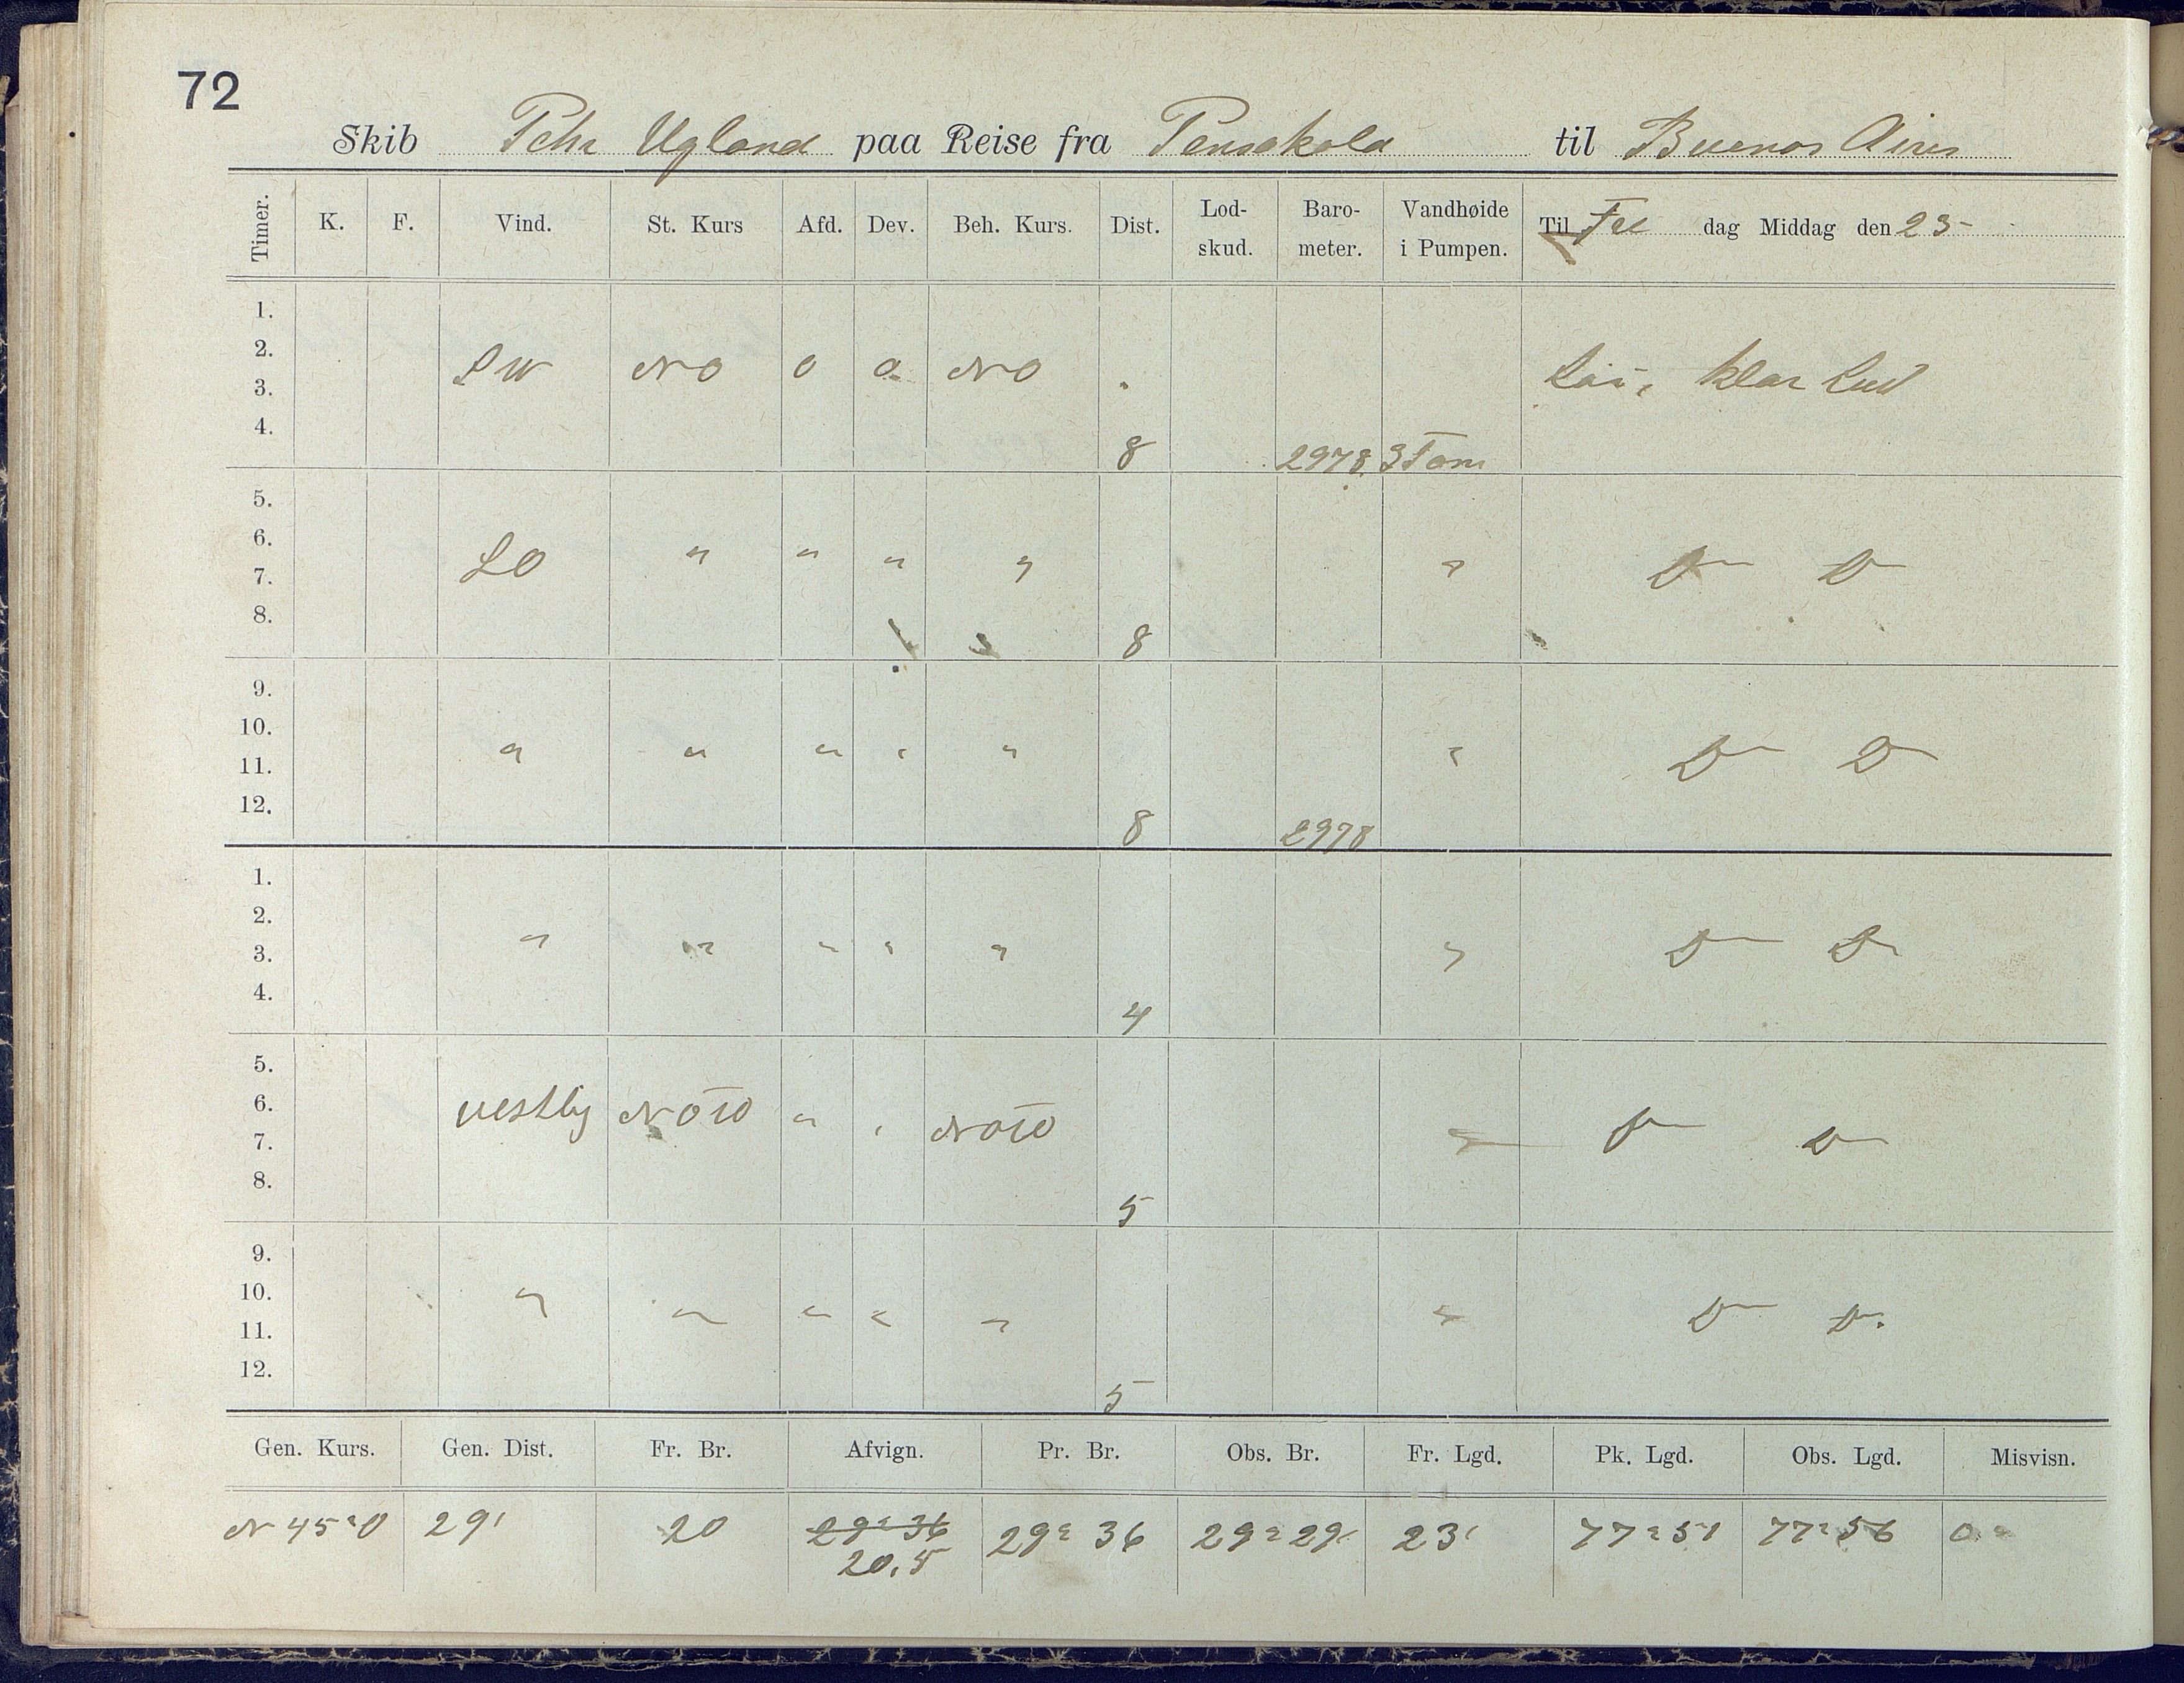 72
Skib Pehr Ugland paa Reise fra Pensakola til Buenos Aires
Timer. K. F. Vind. St. Kurs Afd. Dev. Beh. Kurs. Dist. Lod-skud. Baro-meter. Vandhøide i Pumpen. Til Fre dag Middag den 23
1.
2. SW NO 0 0 NO Lai, klar Luft
3.
4. 8 2978 3 Tom
5.
6. SO " " " "
7. " Do Do
8. 8
9.
10. " " " " " " Do Do
11.
12. 8 2978
1.
2.
3. " " " " " " Do Do
4. 4
5.
6. vestlig NOtO " " NOtO " Do Do
7.
8. 5
9.
10. " " " " " " Do Do
11.
12. 5
Gen. Kurs. Gen. Dist. Fr. Br. Afvign. Pr. Br. Obs. Br. Fr. Lgd. Pk. Lgd. Obs. Lgd. Misvisn.
N 45° O 29' 20 29° 36 29° 36 29° 29' 23' 77° 51 77° 56 0°
20,5